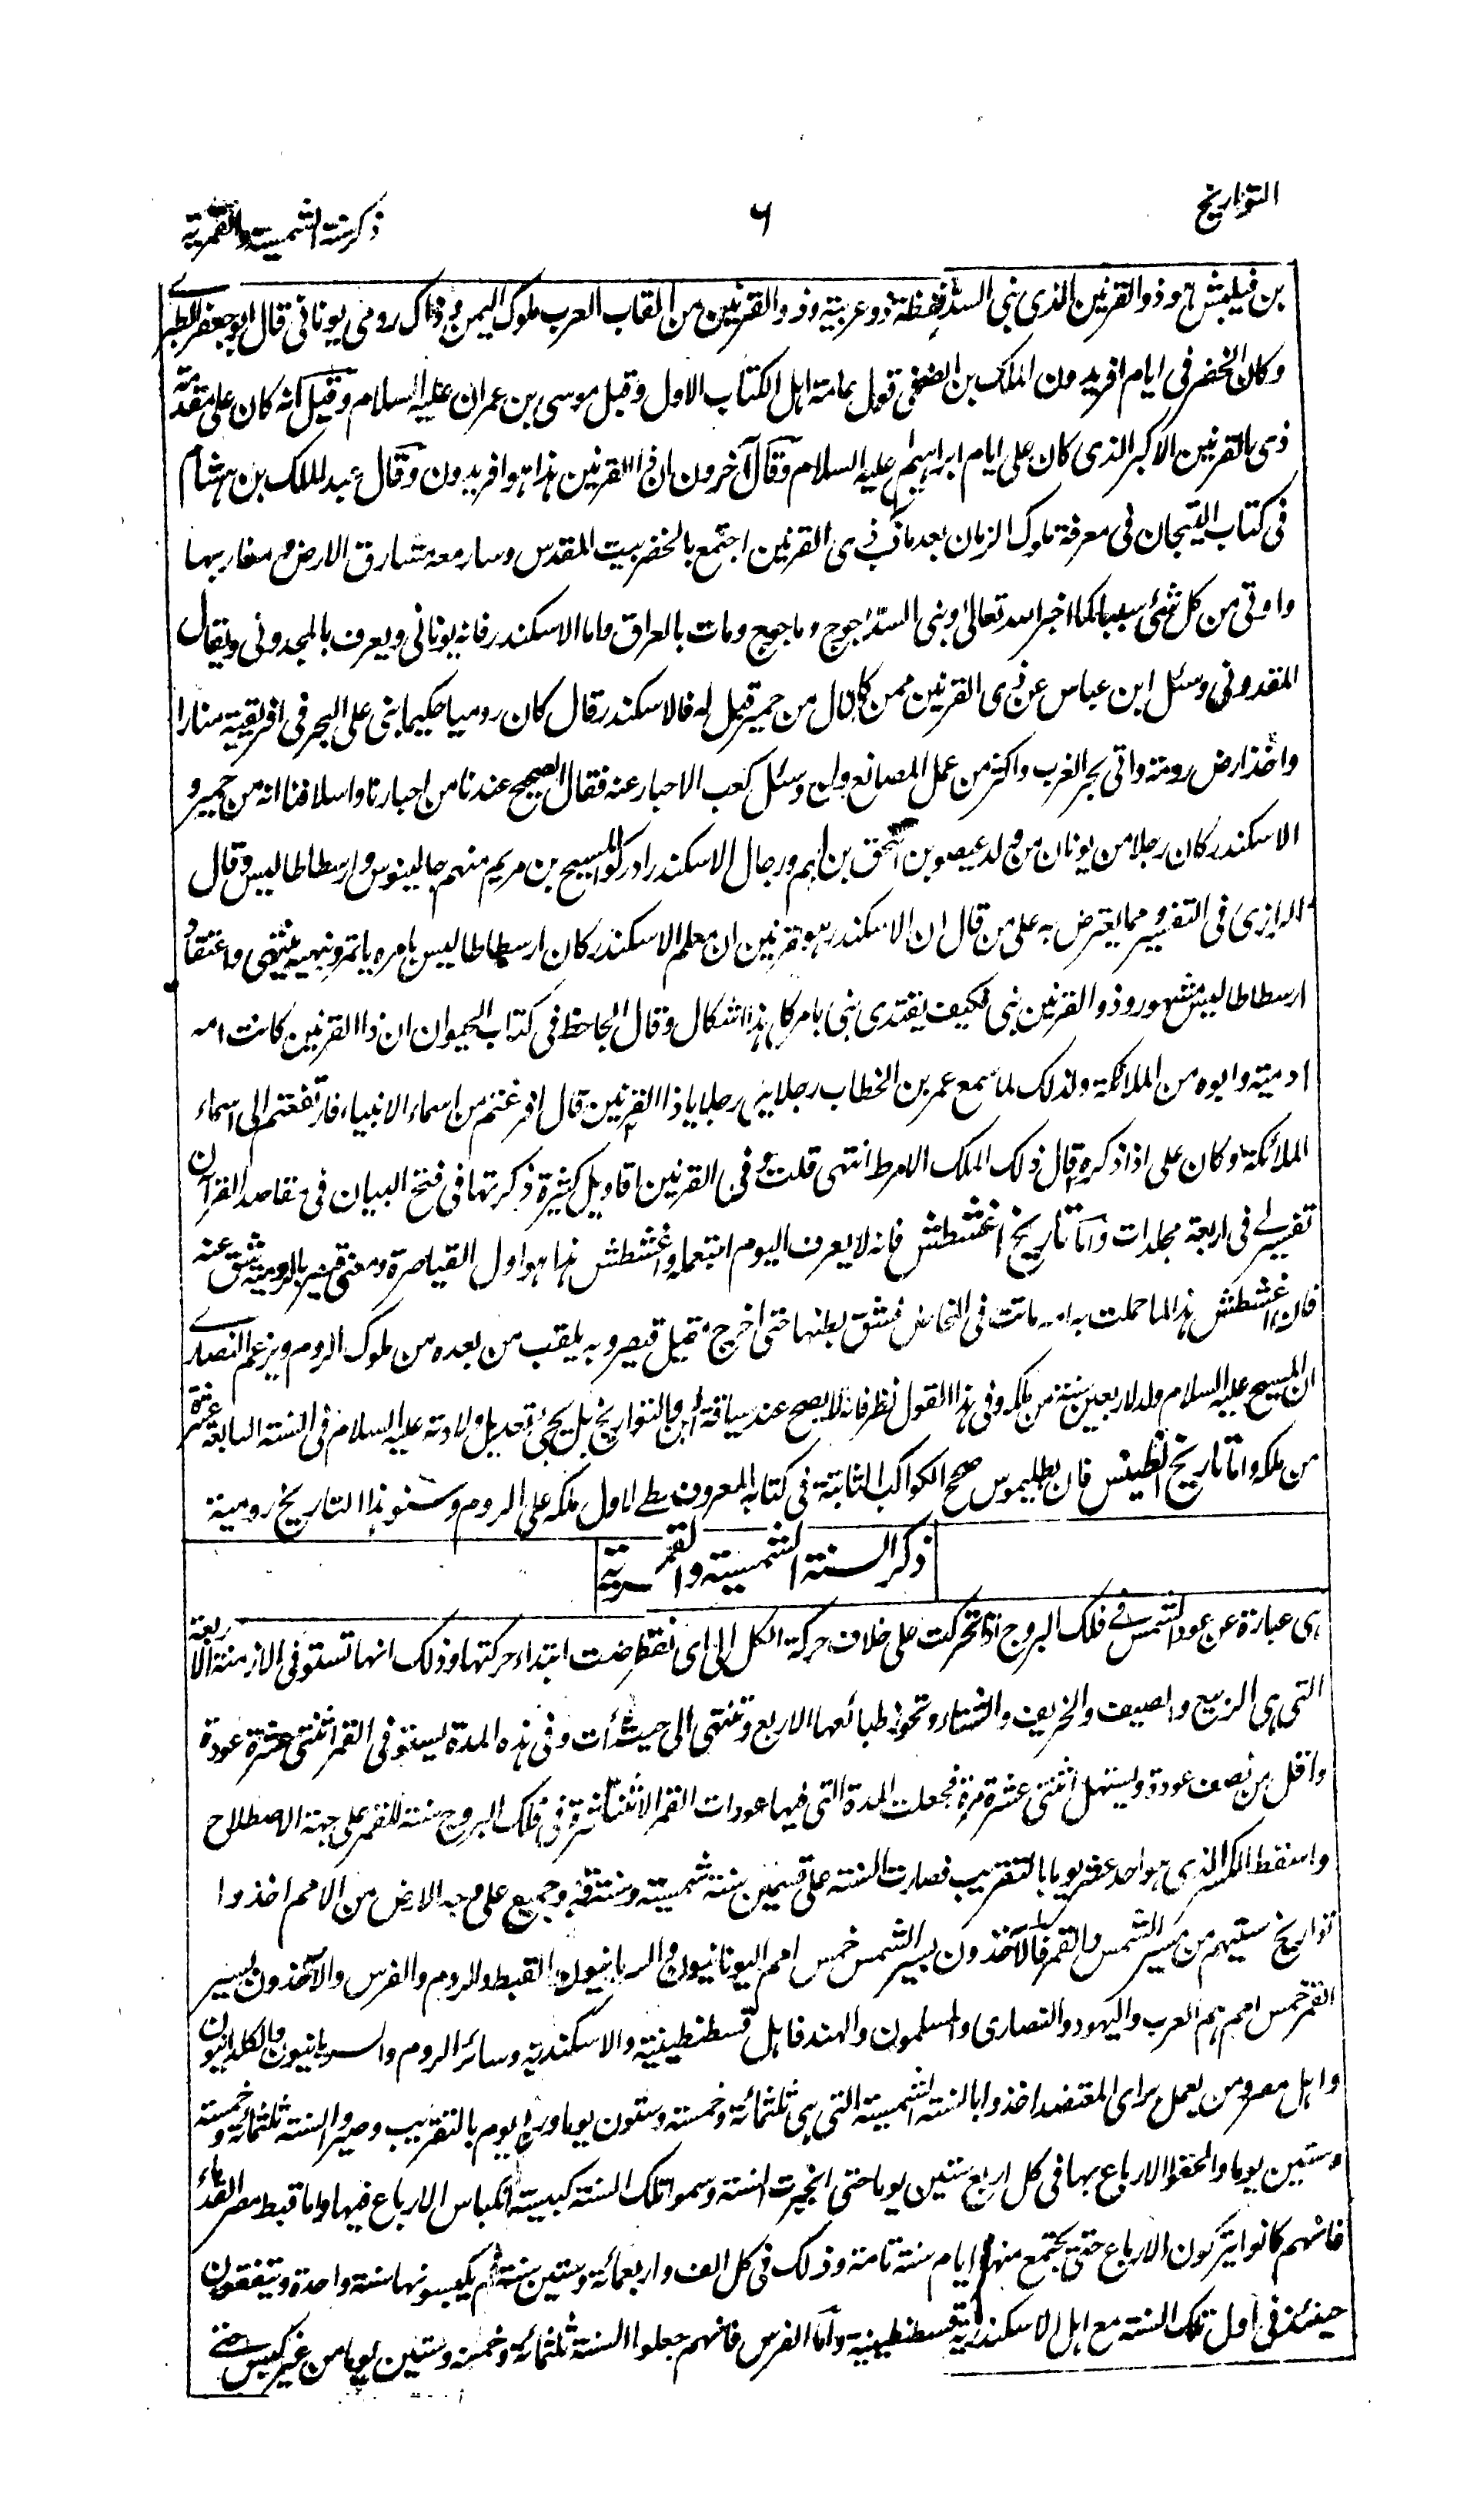 التواريخ
٦
ذكر سنة الشمسية والقمرية
بن فيلبش هو ذو القرنين الذى بنى السد فلفظة ذو عربية وذو القرنين من القاب العرب ملوك اليمن وذاك رومى يونانى قال ابو جعفر الطبرے
وكان الخضر فى ايام افريدون الملك بن الضحى قول عامة اهل الكتاب الاول وقبل موسى بن عمران عليه السلام وقيل انه كان على مقدمة
ذى القرنين الاكبر الذى كان على ايام ابراهيم عليه السلام وقال آخرون ان ذا القرنين هذا هو افريدون وقال عبد الملك بن هشام
فى كتاب التيجان فى معرفة ملوك الزمان بعد ما ذكر ذى القرنين اجتمع بالخضر ببيت المقدس وسار معه مشارق الارض ومغاربها
واوتى من كل شئ سببا كما اخبر الله تعالى وبنى السد ياجوج وماجوج ومات بالعراق واما الاسكندر فانه يونانى ويعرف بالمجدونى ويقال
المقدونى وسئل ابن عباس عن ذى القرنين ممن كان قال من حمير قيل له فالاسكندر قال كان روميا حكيما بنى على البحر فى افريقية منارا
واخذ ارض رومة واتى بحر الغرب واكثر من عمل المصانع والمدن وسئل كعب الاحبار عنه فقال الصحيح عندنا من احبارنا واسلافنا انه من حمير و
الاسكندر كان رجلا من يونان من ولد عيصو بن اسحق بن ابراهيم ورجال الاسكندر ادركوا المسيح بن مريم منهم جالينوس وارسطاطاليس وقال
الرازى فى التفسير ومما يعترض به على من قال ان الاسكندر هو ذو القرنين ان معلم الاسكندر كان ارسطاطاليس بامره ياتمر وبنهيه ينتهى واعتقاد
ارسطاطاليس مشهور وذو القرنين نبى فكيف يقتدى نبى بامر كافر هذا اشكال وقال الجاحظ فى كتاب الحيوان ان ذا القرنين كانت امه
ادمية وابوه من الملائكة ولذلك لما سمع عمر بن الخطاب رجلا ينادى رجلا يا ذا القرنين قال افرغتم من اسماء الانبياء فارتفعتم الى اسماء
الملائكة وكان على اذا ذكره قال ذلك الملك الامرط انتهى قلت وفى ذى القرنين اقاويل كثيرة ذكرتها فى فتح البيان فى مقاصد القرآن
تفسيرى فى اربعة مجلدات واما تاريخ اغشطش فانه لا يعرف اليوم استعمله واغشطش هذا هو اول القياصرة ومعنى قيصر بالرومية شق عنه
فان اغشطش هذا لما حملت به امه ماتت فى المخاض فشق بطنها حتى اخرج فقيل قيصر وبه يلقب من بعده من ملوك الروم ويزعم النصارے
ان المسيح عليه السلام ولد لاربعين سنة من ملكه وفى هذا القول نظر فانه لا يصح عند سياقة السنين والتواريخ بل يجئ تعديل ولادته عليه السلام فى السنة السابعة عشرة
من ملكه واما تاريخ انطينس فان بطليموس صحح الكواكب الثابتة فى كتابه المعروف بالمجسطى لاول ملكه على الروم وسنو هذا التاريخ رومية
ذكر السنة الشمسية والقمرية
هى عبارة عن عود الشمس فى فلك البروج اذا تحركت على خلاف حركة الكل الى اى نقطة فرضت ابتداء حركتها وذلك انها تستوفى الازمنة الاربعة
التى هى الربيع والصيف والخريف والشتاء وتحوز طبائعها الاربع وتنتهى الى حيث بدأت وفى هذه المدة يستوفى القمر اثنتى عشرة عودة
واقل من نصف عودة ويستهل اثنتى عشرة مرة فجعلت المدة التى فيها عودات القمر الاثنتا عشرة فى فلك البروج سنة للقمر على جهة الاصطلاح
واسقط الكسر الذى هو احد عشر يوما بالتقريب فصارت السنة على قسمين سنة شمسية وسنة قمرية وجميع من على وجه الارض من الامم اخذوا
تواريخ سنيهم من مسير الشمس والقمر فالآخذون بسير الشمس خمس امم اليونانيون والسريانيون والقبط والروم والفرس والآخذون بسير
القمر خمس امم هم العرب واليهود والنصارى والمسلمون والهند فاهل قسطنطينية والاسكندرية وسائر الروم والسريانيون والكلدانيون
واهل مصر ومن يعمل براى المعتضد اخذوا بالسنة الشمسية التى هى ثلثمائة وخمسة وستون يوما وربع يوم بالتقريب وصيروا السنة ثلثمائة وخمسة
وستين يوما والحقوا الارباع بها فى كل اربع سنين يوما حتى انجبرت السنة وسموا تلك السنة كبيسة لانكباس الارباع فيها واما قبط مصر القدماء
فانهم كانوا يتركون الارباع حتى يجتمع منها ايام سنة تامة وذلك فى كل الف واربعمائة وستين سنة ثم يكبسونها سنة واحدة ويتفقون
حينئذ فى اول تلك السنة مع اهل الاسكندرية وقسطنطينية واما الفرس فانهم جعلوا السنة ثلثمائة وخمسة وستين يوما من غير كبس حتى